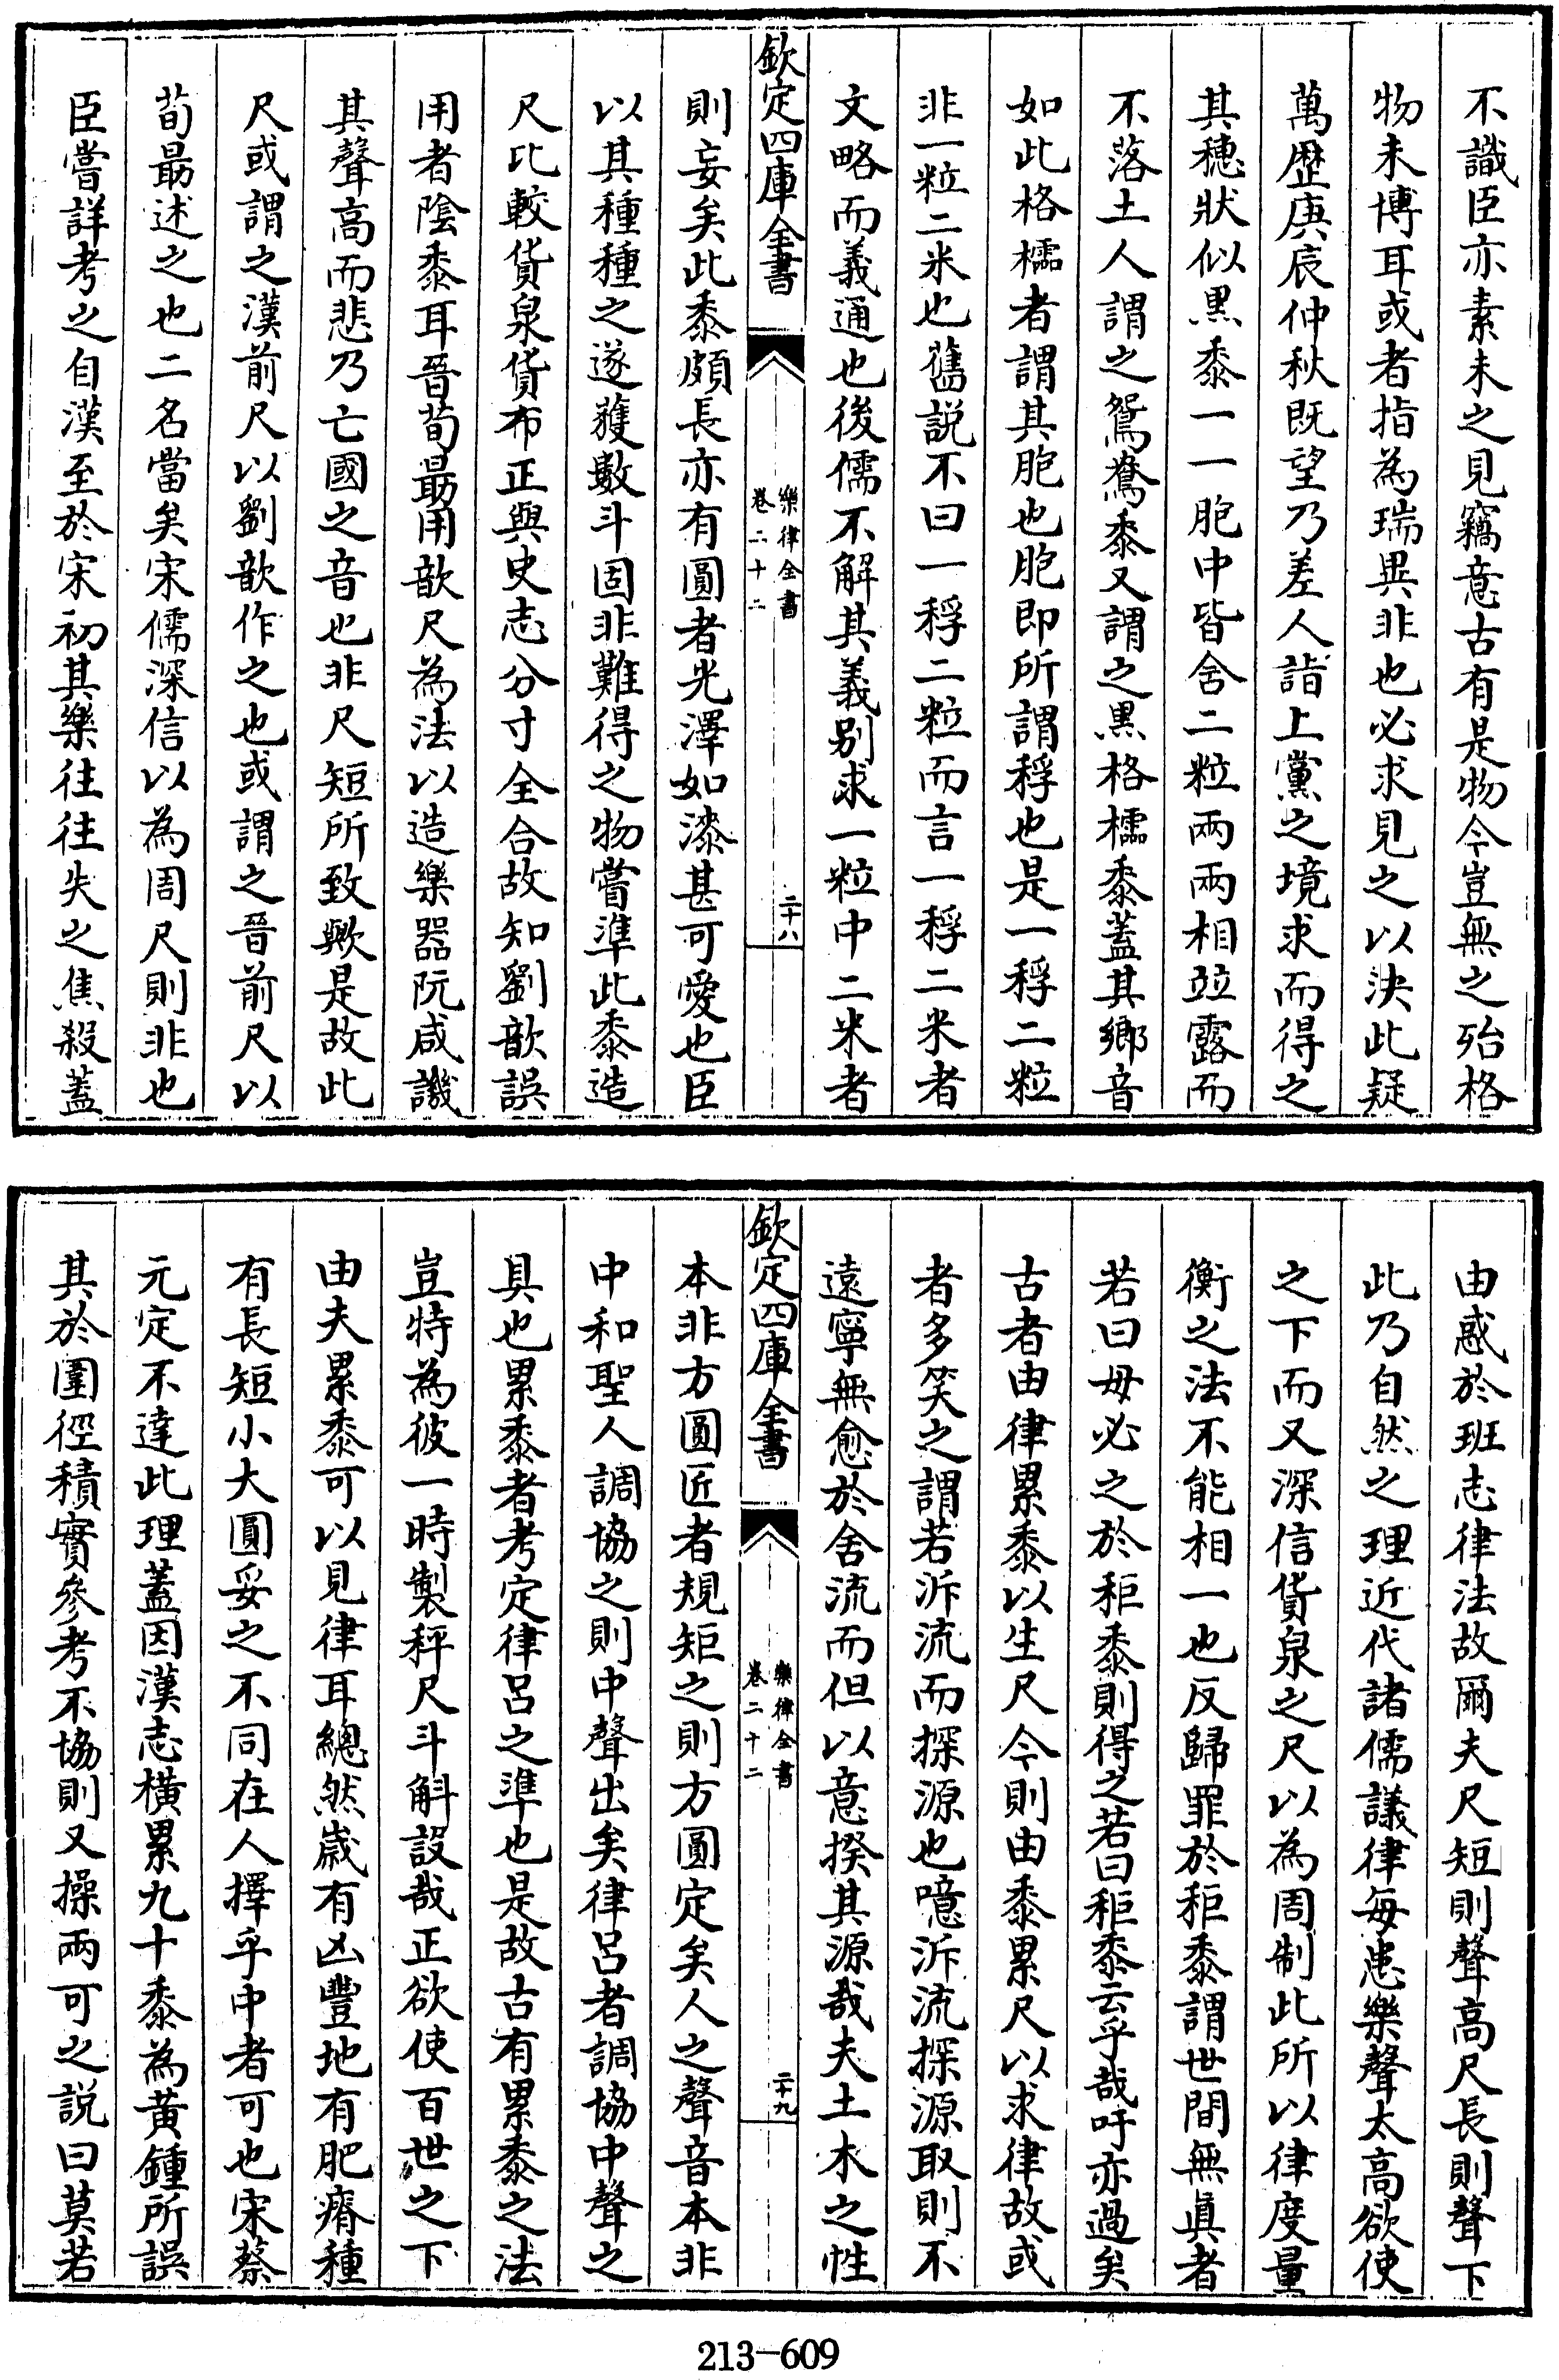 不識臣亦素未之見竊意古有是物今豈無之殆格
物未博耳或者指為瑞異非也必求見之以決此疑
萬歴庚辰仲秋既望乃差人詣上黨之境求而得之
其穗狀似黒黍一一胞中皆含二粒兩兩相竝露而
不落土人謂之鴛鴦黍又謂之黒格檽黍蓋其鄉音
如此格檽者謂其胞也胞即所謂稃也是一稃二粒
非一粒二米也舊説不曰一稃二粒而言一稃二米者
文略而義通也後儒不解其義别求一粒中二米者
欽定四庫全書
樂律全書
卷二十二
二十八
則妄矣此黍頗長亦有圓者光澤如漆甚可愛也臣
以其種種之遂蔉數斗固非難得之物嘗準此黍造
尺比較貨泉貨布正與史志分寸全合故知劉歆誤
用者隂黍耳晉荀最用歆尺為法以造樂器阮咸譏
其聲高而悲乃亡國之音也非尺短所致歟是故此
尺或謂之漢前尺以劉歆作之也或謂之晉前尺以
荀最述之也二名當矣宋儒深信以為周尺則非也
臣嘗詳考之自漢至於宋初其樂往往失之焦殺蓋
由惑於班志律法故爾夫尺短則聲高尺長則聲下
此乃自然之理近代諸儒議律每患樂聲太高欲使
之下而又深信貨泉之尺以為周制此所以律度量
衡之法不能相一也反歸罪於秬黍謂世間無眞者
若曰毋必之於秬黍則得之若曰秬黍云乎哉吁亦過矣
古者由律累黍以生尺今則由黍累尺以求律故或
者多笑之謂若泝流而探源也噫泝流探源取則不
遠寧無愈於舍流而但以意揆其源哉夫土木之性
欽定四庫全書
樂律全書
卷二十二
二十九
本非方圓匠者規矩之則方圓定矣人之聲音本非
中和聖人調協之則中聲出矣律呂者調協中聲之
具也累黍者考定律呂之準也是故古有累黍之法
豈特為彼一時製秤尺斗斛設哉正欲使百世之下
由夫累黍可以見律耳總然歲有凶豐地有肥瘠種
有長短小大圓妥之不同在人擇乎中者可也宋蔡
元定不達此理蓋因漢志横累九十黍為黃鍾所誤
其於圍徑積實參考不協則又操兩可之説曰莫若
213-609